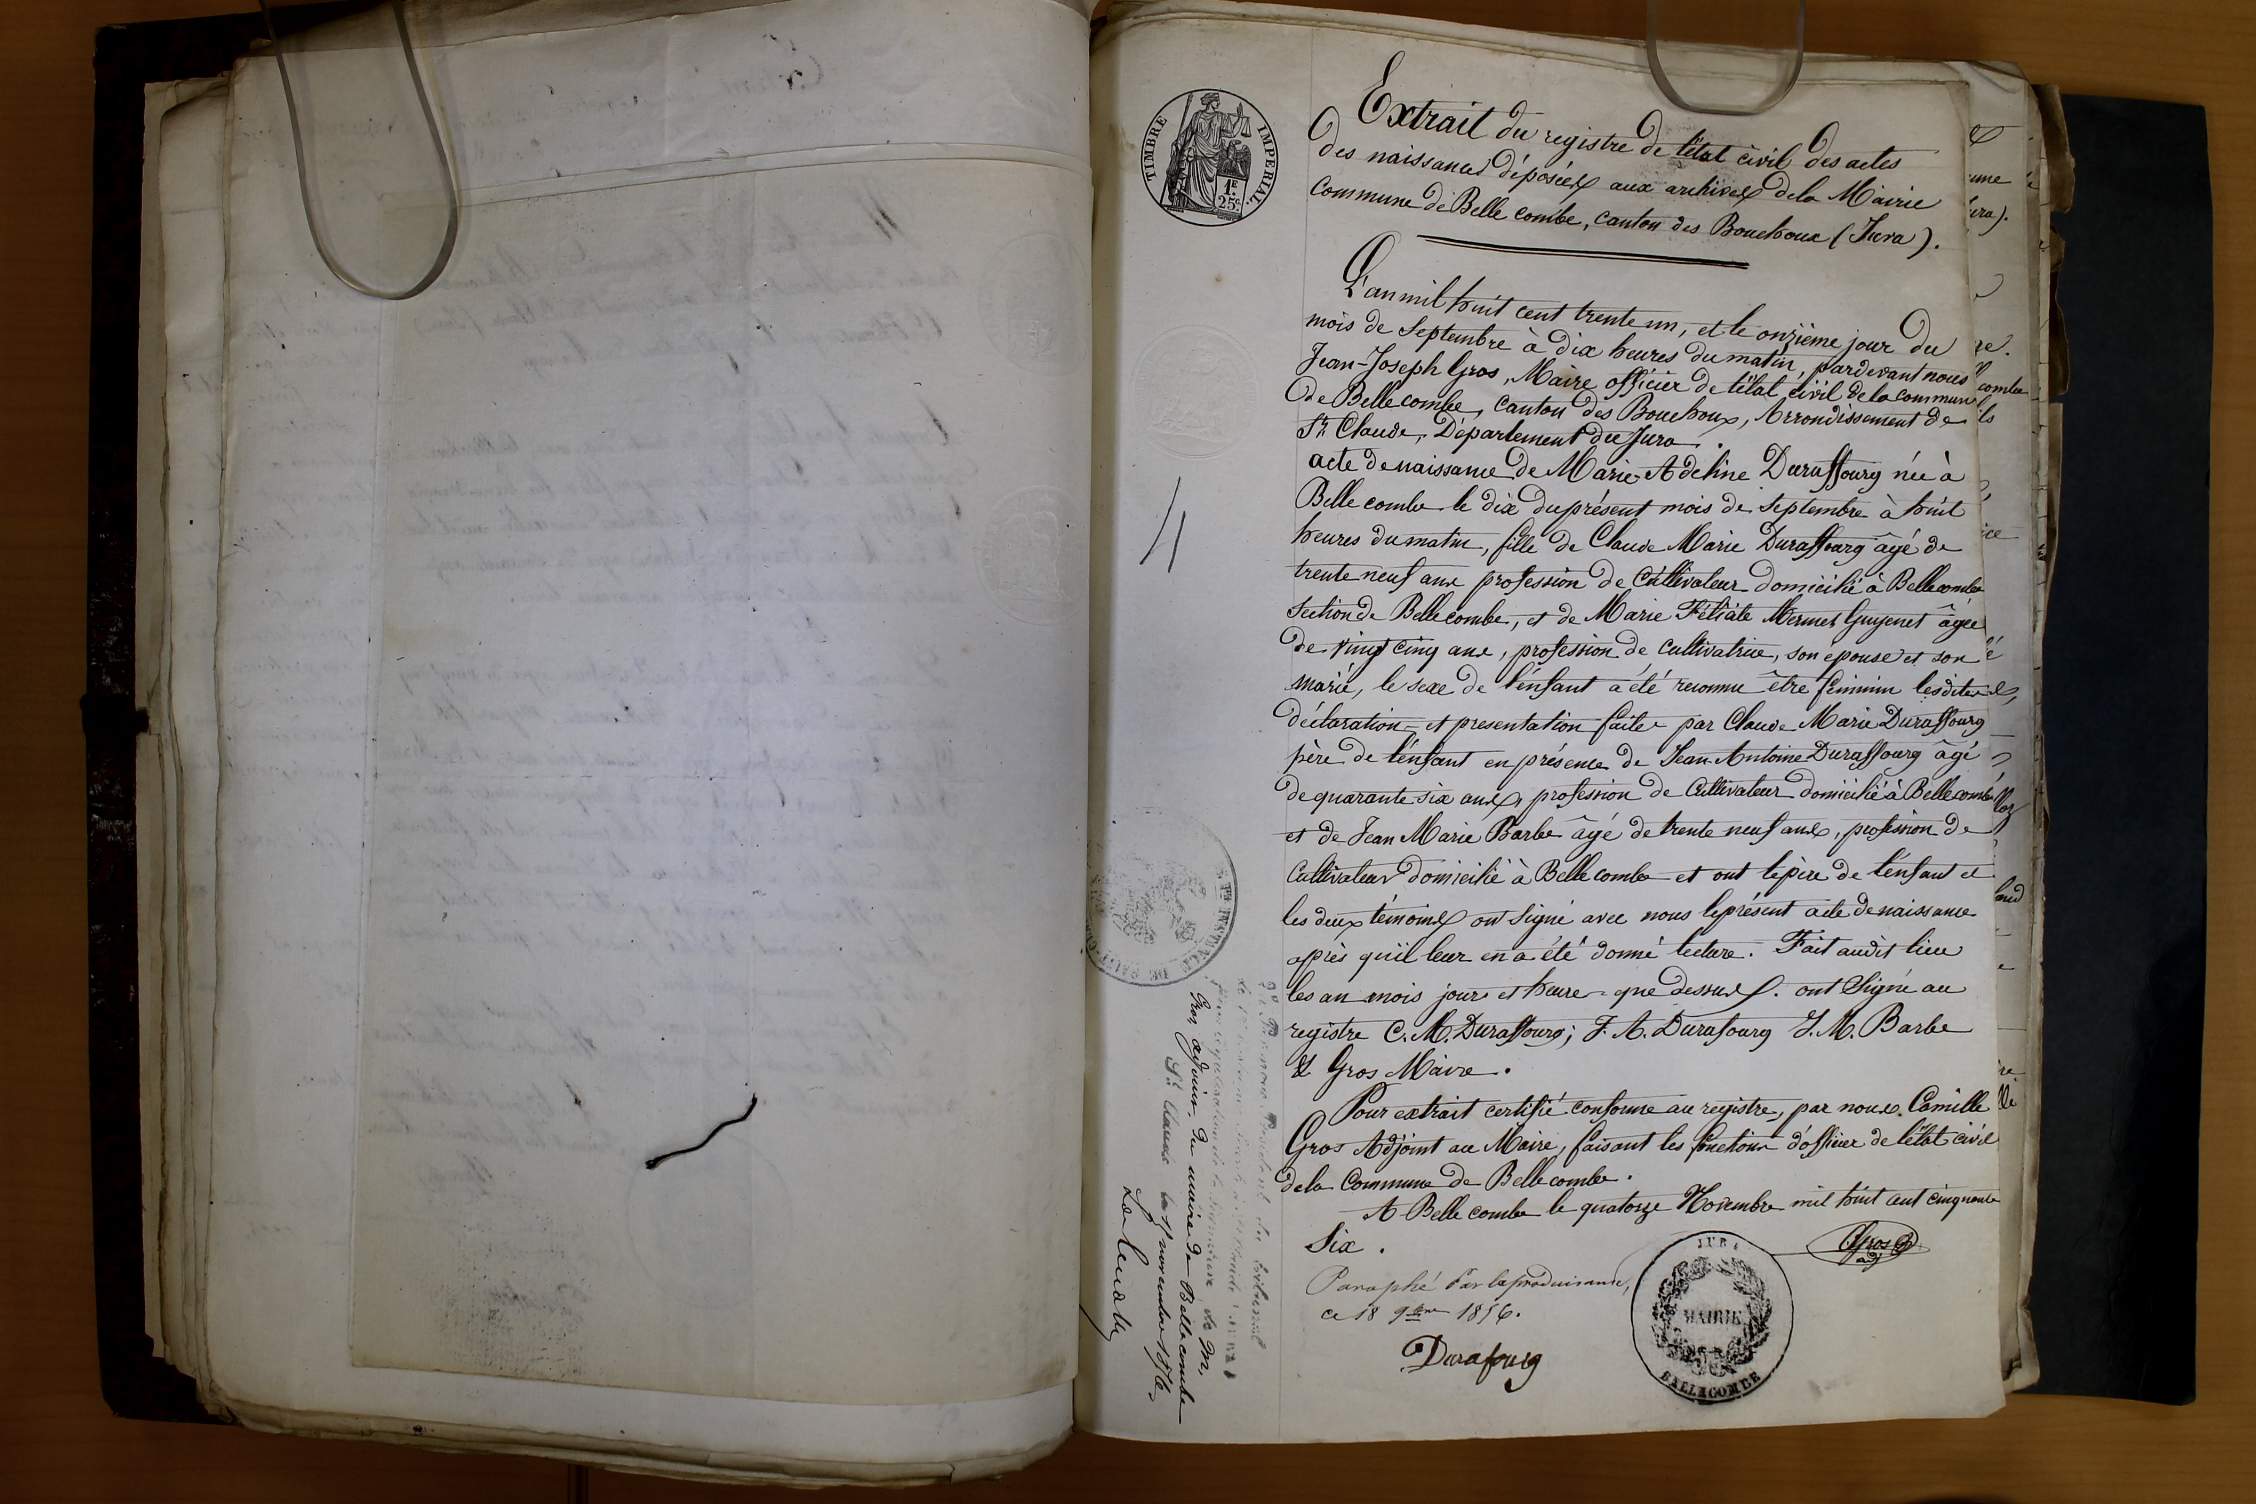 TIMBRE IMPERIAL.
1F.
25c.
Extrait du registre de l'état civil des actes
des naissances déposées aux archives de la Mairie
Commune de Belle combe, canton des Bouchoux (Jura).
L'an mil huit cent trente un, et le onzième jour du
mois de Septembre à dix heures du matin, pardevant nous
Jean-Joseph Gros, Maire officier de l'état civil de la commune
de Bellecombe, canton des Bouchoux, Arrondissement de
St Claude, Département du Jura.
acte de naissance de Marie Adeline Duraffourg née à
Belle combe le dix du présent mois de Septembre à huit
heures du matin, fille de Claude Marie Duraffourg âgé de
trente neuf ans profession de Cultivateur domicilié à Bellecombe
Section de Bellecombe, et de Marie Féliate Mermet Guyenet âgée
de vingt cinq ans, profession de cultivatrice, son épouse et son
marié, le sexe de l'enfant a été reconnu être féminin lesdites
déclaration et presentation faite par Claude Marie Duraffourg
père de l'enfant en présence de Jean Antoine Duraffourg âgé
de quarante six ans, profession de Cultivateur domicilié à Bellecombe
et de Jean Marie Barbe âgé de trente neuf ans, profession de
Cultivateur domicilié à Belle combe et ont le père de l'enfant et
les deux témoins ont signé avec nous le présent acte de naissance
après qu'il leur en a été donné lecture. Fait audit lieu
les an mois jour et heure que dessus. ont Signé au
registre C. M. Duraffourg; J. A. Durafourg J. M. Barbe
& Gros Maire.
Pour extrait certifié conforme au registre, par nous Camille
Gros Adjoint au Maire, faisant les fonctions d'officier de l'état civil
de la Commune de Bellecombe.
A Belle combe le quatorze Novembre mil huit cent cinquante
Six.
Gros
adj
Paraphé Par la produisante,
ce 18 9bre 1856.
Durafourg
JURA
MAIRIE
BELLECOMBE
Gros adjoint du maire de Bellecombe
St Claude le 17 novembre 1856.